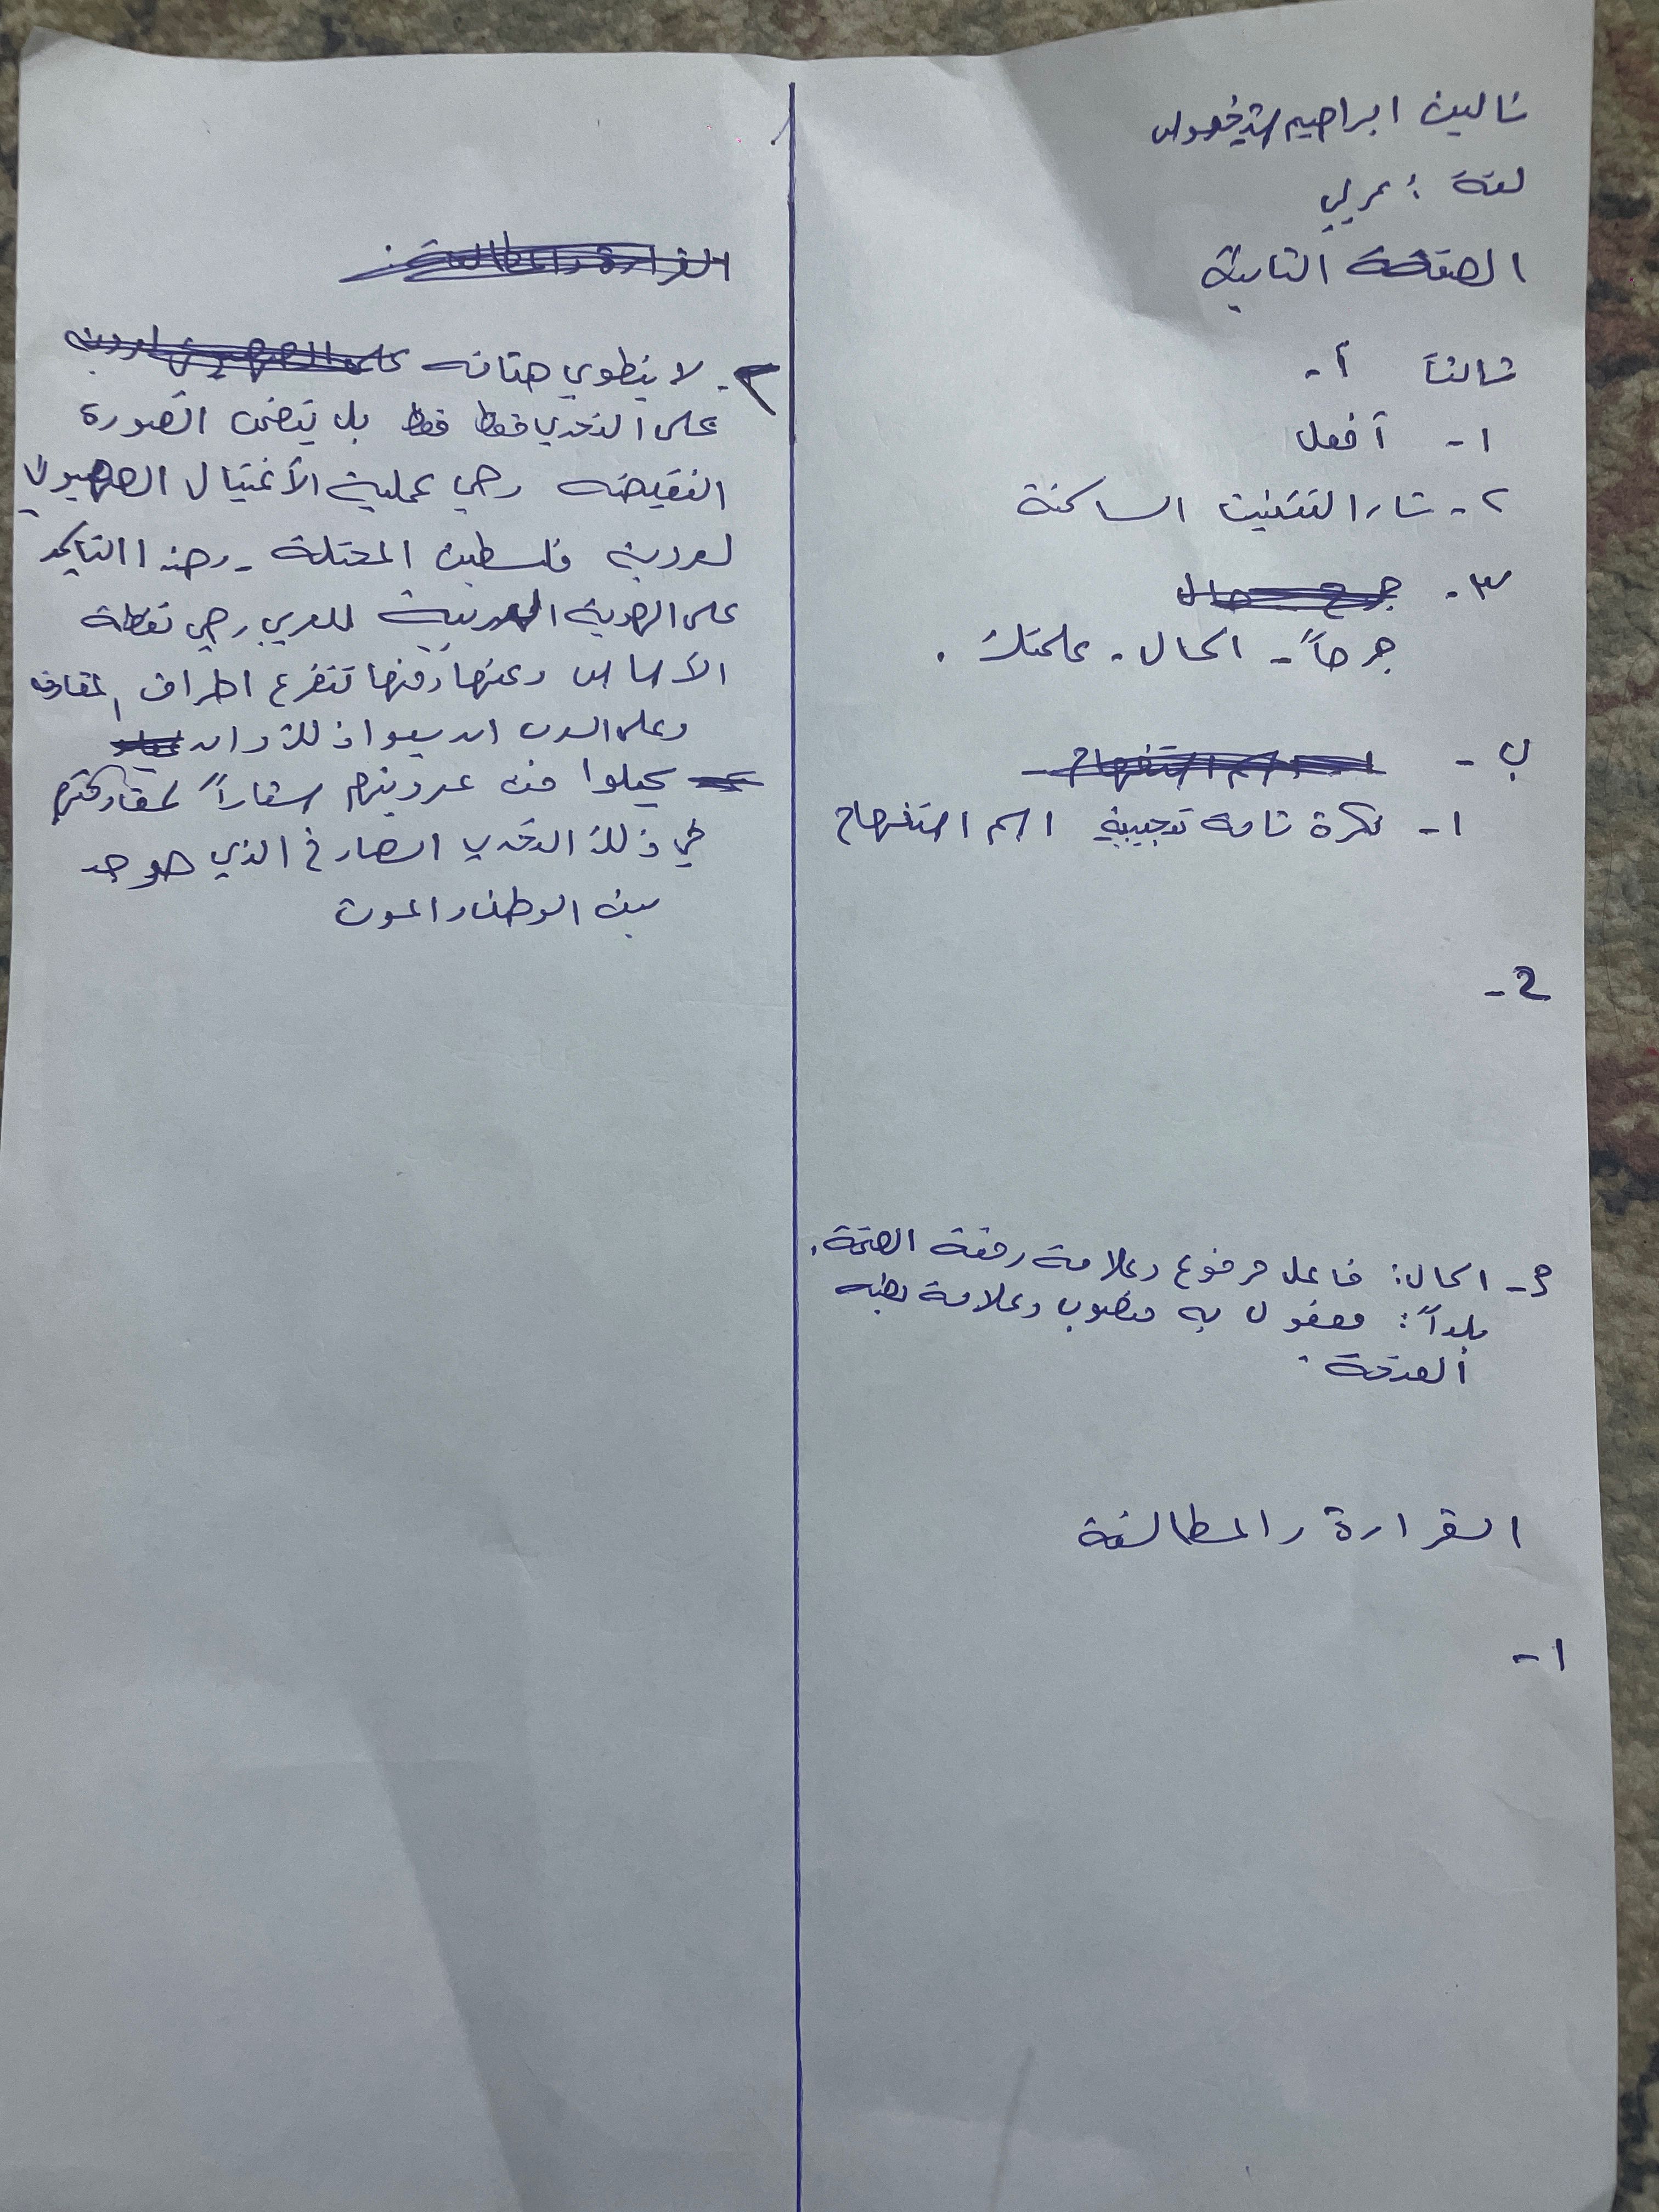 تالين ابراهيم
لغة : عربي
الصفحة الثانية
ثالثاً أ-
١- أفعل
٢- تاء التأنيث الساكنة
٣-
جرحاً - الحال - علمتك .
ب -
١- نكرة تامة تعجبية اسم استفهام
2-
3- الحال: فاعل مرفوع وعلامة رفعة الضمة.
بلداً: مفعول به منصوب وعلامة نصبه
الفتحة .
القراءة والمطالعة
١-
٢- لا ينطوي هتافه
على التحدي فقط فقط بل يتضمن الصورة
النقيضه وهي عملية الأغتيال الصهيوني
لعروبة فلسطين المحتلة - وهذا التأكيد
على الهوية العربية للعربي وهي نقطة
الأساس وعنها ومنها تتفرع اطراف
وعلى العرب ان يعوا ذلك وان
يجعلوا من عروبتهم شعاراً لمقاومتهم
في ذلك التحدي الصارخ الذي هو حد
بين الوطن والموت